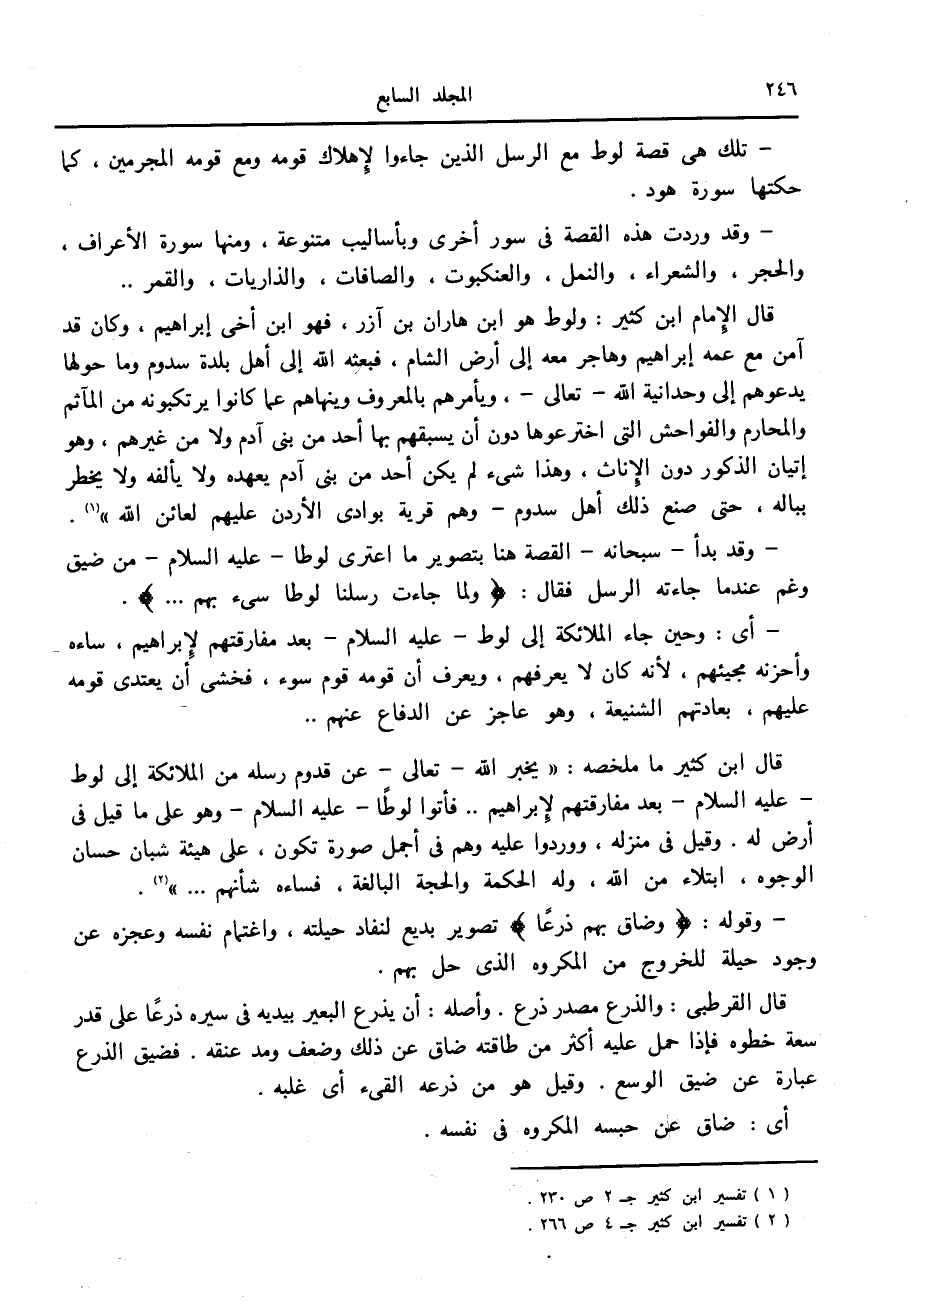 ٢٤٦
المجلد السابع
– تلك هى قصة لوط مع الرسل الذين جاءوا لإهلاك قومه ومع قومه المجرمين ، كما
حكتها سورة هود .
– وقد وردت هذه القصة فى سور أخرى وبأساليب متنوعة ، ومنها سورة الأعراف ،
والحجر ، والشعراء ، والنمل ، والعنكبوت ، والصافات ، والذاريات ، والقمر ..
قال الإمام ابن كثير : ولوط هو ابن هاران بن آزر ، فهو ابن أخى إبراهيم ، وكان قد
آمن مع عمه إبراهيم وهاجر معه إلى أرض الشام ، فبعثه الله إلى أهل بلدة سدوم وما حولها
يدعوهم إلى وحدانية الله – تعالى – ، ويأمرهم بالمعروف وينهاهم عما كانوا يرتكبونه من المآثم
والمحارم والفواحش التى اخترعوها دون أن يسبقهم بها أحد من بنى آدم ولا من غيرهم ، وهو
إتيان الذكور دون الإناث ، وهذا شىء لم يكن أحد من بنى آدم يعهده ولا يألفه ولا يخطر
بباله ، حتى صنع ذلك أهل سدوم – وهم قرية بوادى الأردن عليهم لعائن الله »(١) .
– وقد بدأ – سبحانه – القصة هنا بتصوير ما اعترى لوطا – عليه السلام – من ضيق
وغم عندما جاءته الرسل فقال : ﴿ ولما جاءت رسلنا لوطا سىء بهم ... ﴾ .
– أى : وحين جاء الملائكة إلى لوط – عليه السلام – بعد مفارقتهم لإبراهيم ، ساءه
وأحزنه مجيئهم ، لأنه كان لا يعرفهم ، ويعرف أن قومه قوم سوء ، فخشى أن يعتدى قومه
عليهم ، بعادتهم الشنيعة ، وهو عاجز عن الدفاع عنهم ..
قال ابن كثير ما ملخصه : « يخبر الله – تعالى – عن قدوم رسله من الملائكة إلى لوط
– عليه السلام – بعد مفارقتهم لإبراهيم .. فأتوا لوطًا – عليه السلام – وهو على ما قيل فى
أرض له . وقيل فى منزله ، ووردوا عليه وهم فى أجمل صورة تكون ، على هيئة شبان حسان
الوجوه ، ابتلاء من الله ، وله الحكمة والحجة البالغة ، فساءه شأنهم ... »(٢) .
– وقوله : ﴿ وضاق بهم ذرعًا ﴾ تصوير بديع لنفاد حيلته ، واغتمام نفسه وعجزه عن
وجود حيلة للخروج من المكروه الذى حل بهم .
قال القرطبى : والذرع مصدر ذرع . وأصله : أن يذرع البعير بيديه فى سيره ذرعًا على قدر
سعة خطوه فإذا حمل عليه أكثر من طاقته ضاق عن ذلك وضعف ومد عنقه . فضيق الذرع
عبارة عن ضيق الوسع . وقيل هو من ذرعه القىء أى غلبه .
أى : ضاق عن حبسه المكروه فى نفسه .
( ١ ) تفسير ابن كثير جـ ٢ ص ٢٣٠ .
( ٢ ) تفسير ابن كثير جـ ٤ ص ٢٦٦ .